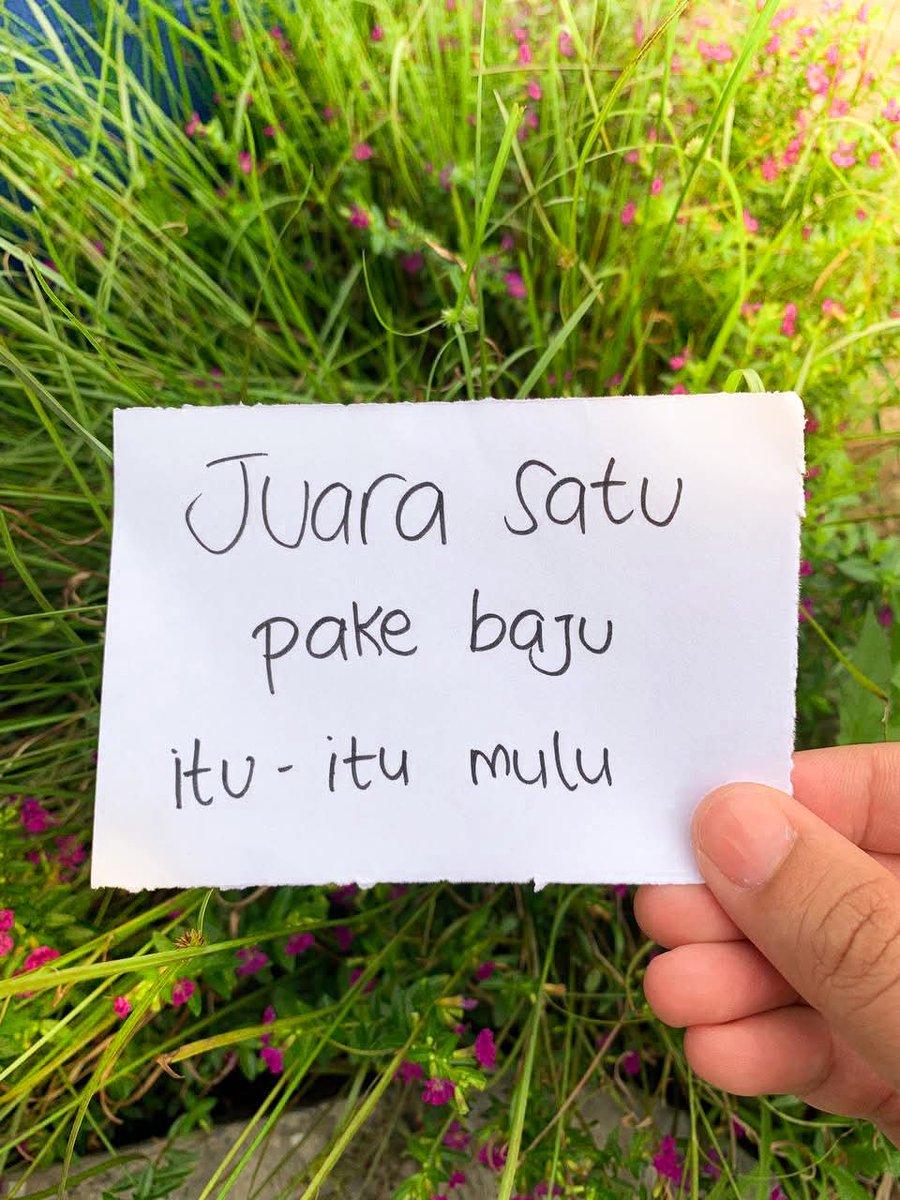 Juara satu
pake baju
itu-itu mulu